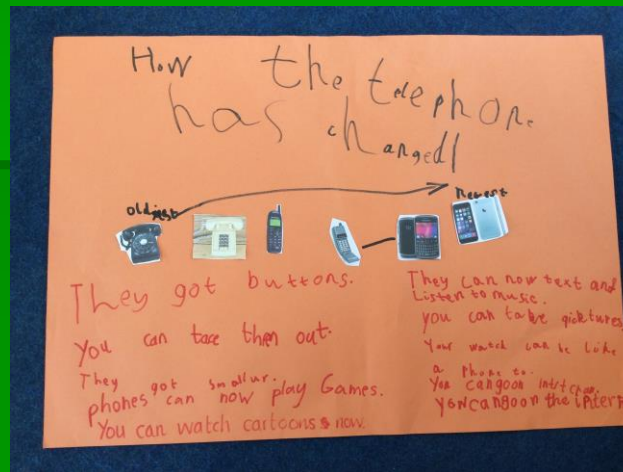 How the telephone
has changed!
oldist
Recest
They got buttons.
You can tace then out.
They got smallur.
phones can now play Games.
You can watch cartoons now.
They can now text and
Listen to music.
you can take picktures
Your watch can be Like
a phone to.
You can go on
You can go on the intern